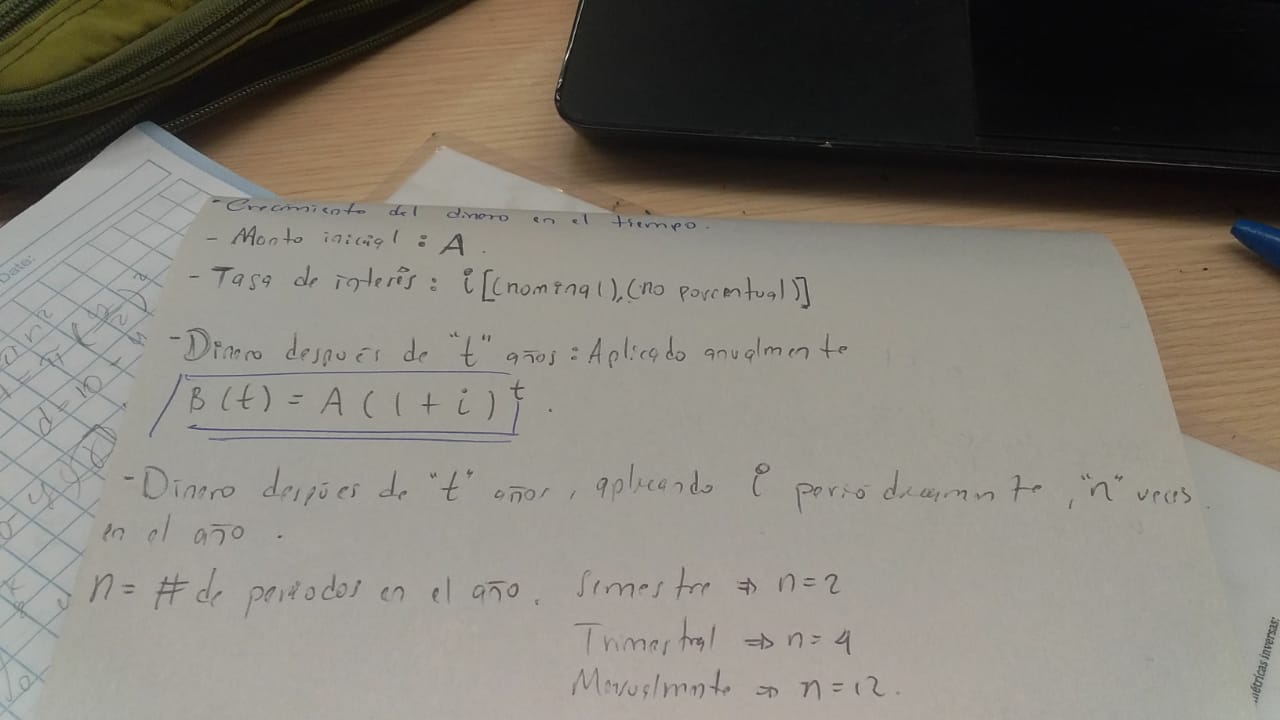 - Crecimiento del dinero en el tiempo.
- Monto inicial : A.
- Tasa de interés : i [(nominal), (no porcentual)]
- Dinero después de "t" años : Aplicado anualmente
B(t) = A(1+i)^t.
- Dinero despúes de "t" años, aplicando i periódicamente, "n" veces
en el año.
n = # de periodos en el año. Semestre ⇒ n=2
Trimestral ⇒ n=4
Mensualmente ⇒ n=12.
Date:
d = 10
métricas inversas: